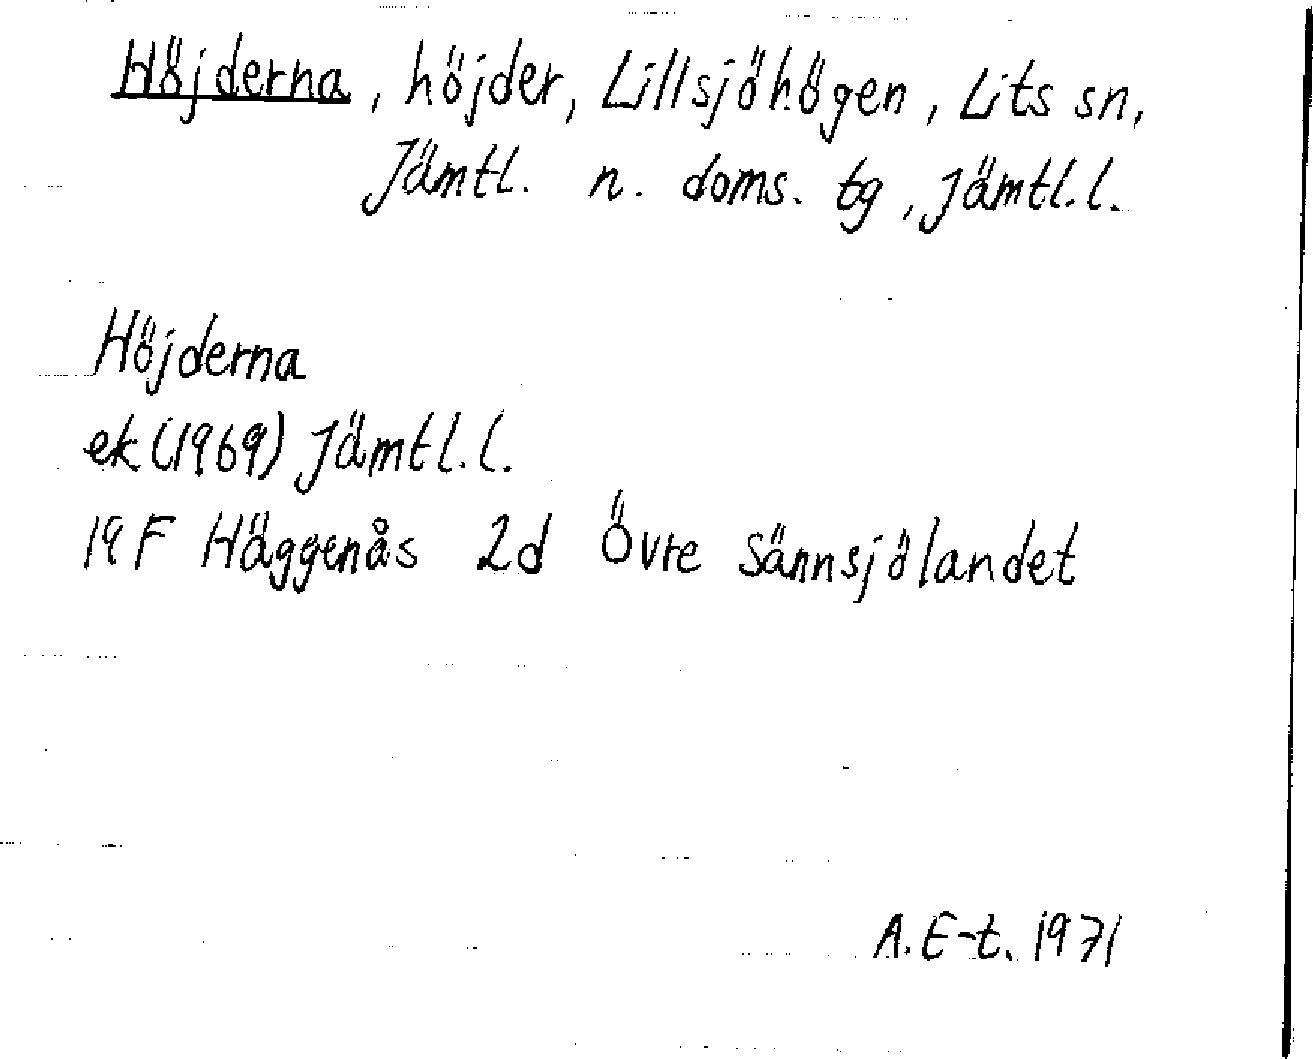 Höjderna, höjder, Lillsjöhögen, Lits sn,
Jämtl. n. doms. tg, Jämtl. l.
Höjderna
ek (1969) Jämtl. l.
19F Häggenås 2d Övre Sännsjölandet
A. E-t. 1971